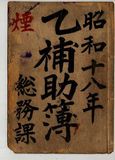 昭和十八年
乙補助簿
煙
総務課